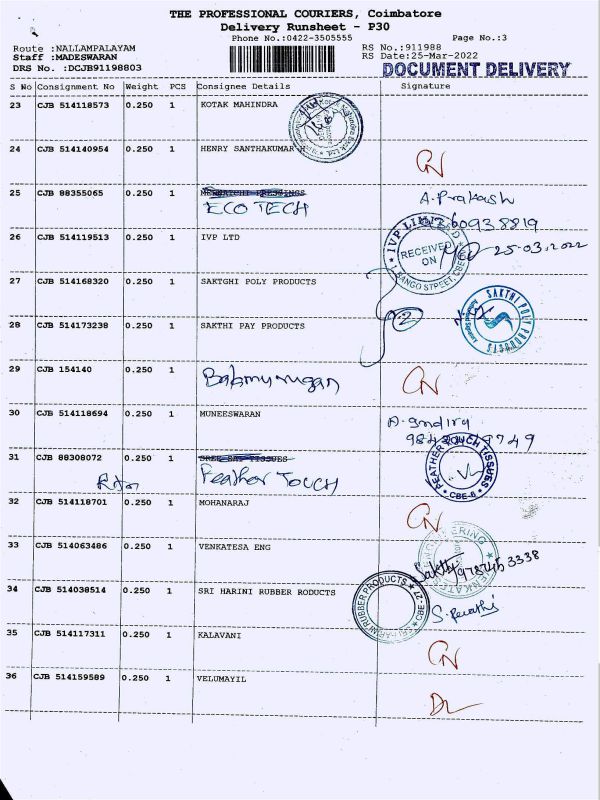 THE PROFESSIONAL COURIERS, Coimbatore
Delivery Runsheet - P30
Phone No.:0422-3505555 Page No.:3
Route :NALLAMPALAYAM RS No.:911988
Staff :MADESWARAN RS Date:25-Mar-2022
DRS No. :DCJB91198803 DOCUMENT DELIVERY
S No Consignment No Weight PCS Consignee Details Signature
23 CJB 514118573 0.250 1 KOTAK MAHINDRA
24 CJB 514140954 0.250 1 HENRY SANTHAKUMAR H
CN
25 CJB 88355065 0.250 1 A. Prakash
ECO TECH
26 CJB 514119513 0.250 1 IVP LTD IVP LIMITED
RECEIVED ON 25-03.2022
27 CJB 514168320 0.250 1 SAKTGHI POLY PRODUCTS
28 CJB 514173238 0.250 1 SAKTHI PAY PRODUCTS SAKTHI POLY PRODUCTS
29 CJB 154140 0.250 1 Babmurugan CN
30 CJB 514118694 0.250 1 MUNEESWARAN A. Indira
31 CJB 88308072 0.250 1 SREE SAI TISSUES
Feather Touch FEATHER TOUCH TISSUES
CBE-6
32 CJB 514118701 0.250 1 MOHANARAJ CN
33 CJB 514063486 0.250 1 VENKATESA ENG
Sakthi
34 CJB 514038514 0.250 1 SRI HARINI RUBBER RODUCTS SRI HARINI RUBBER PRODUCTS
35 CJB 514117311 0.250 1 KALAVANI CN
36 CJB 514159589 0.250 1 VELUMAYIL DL